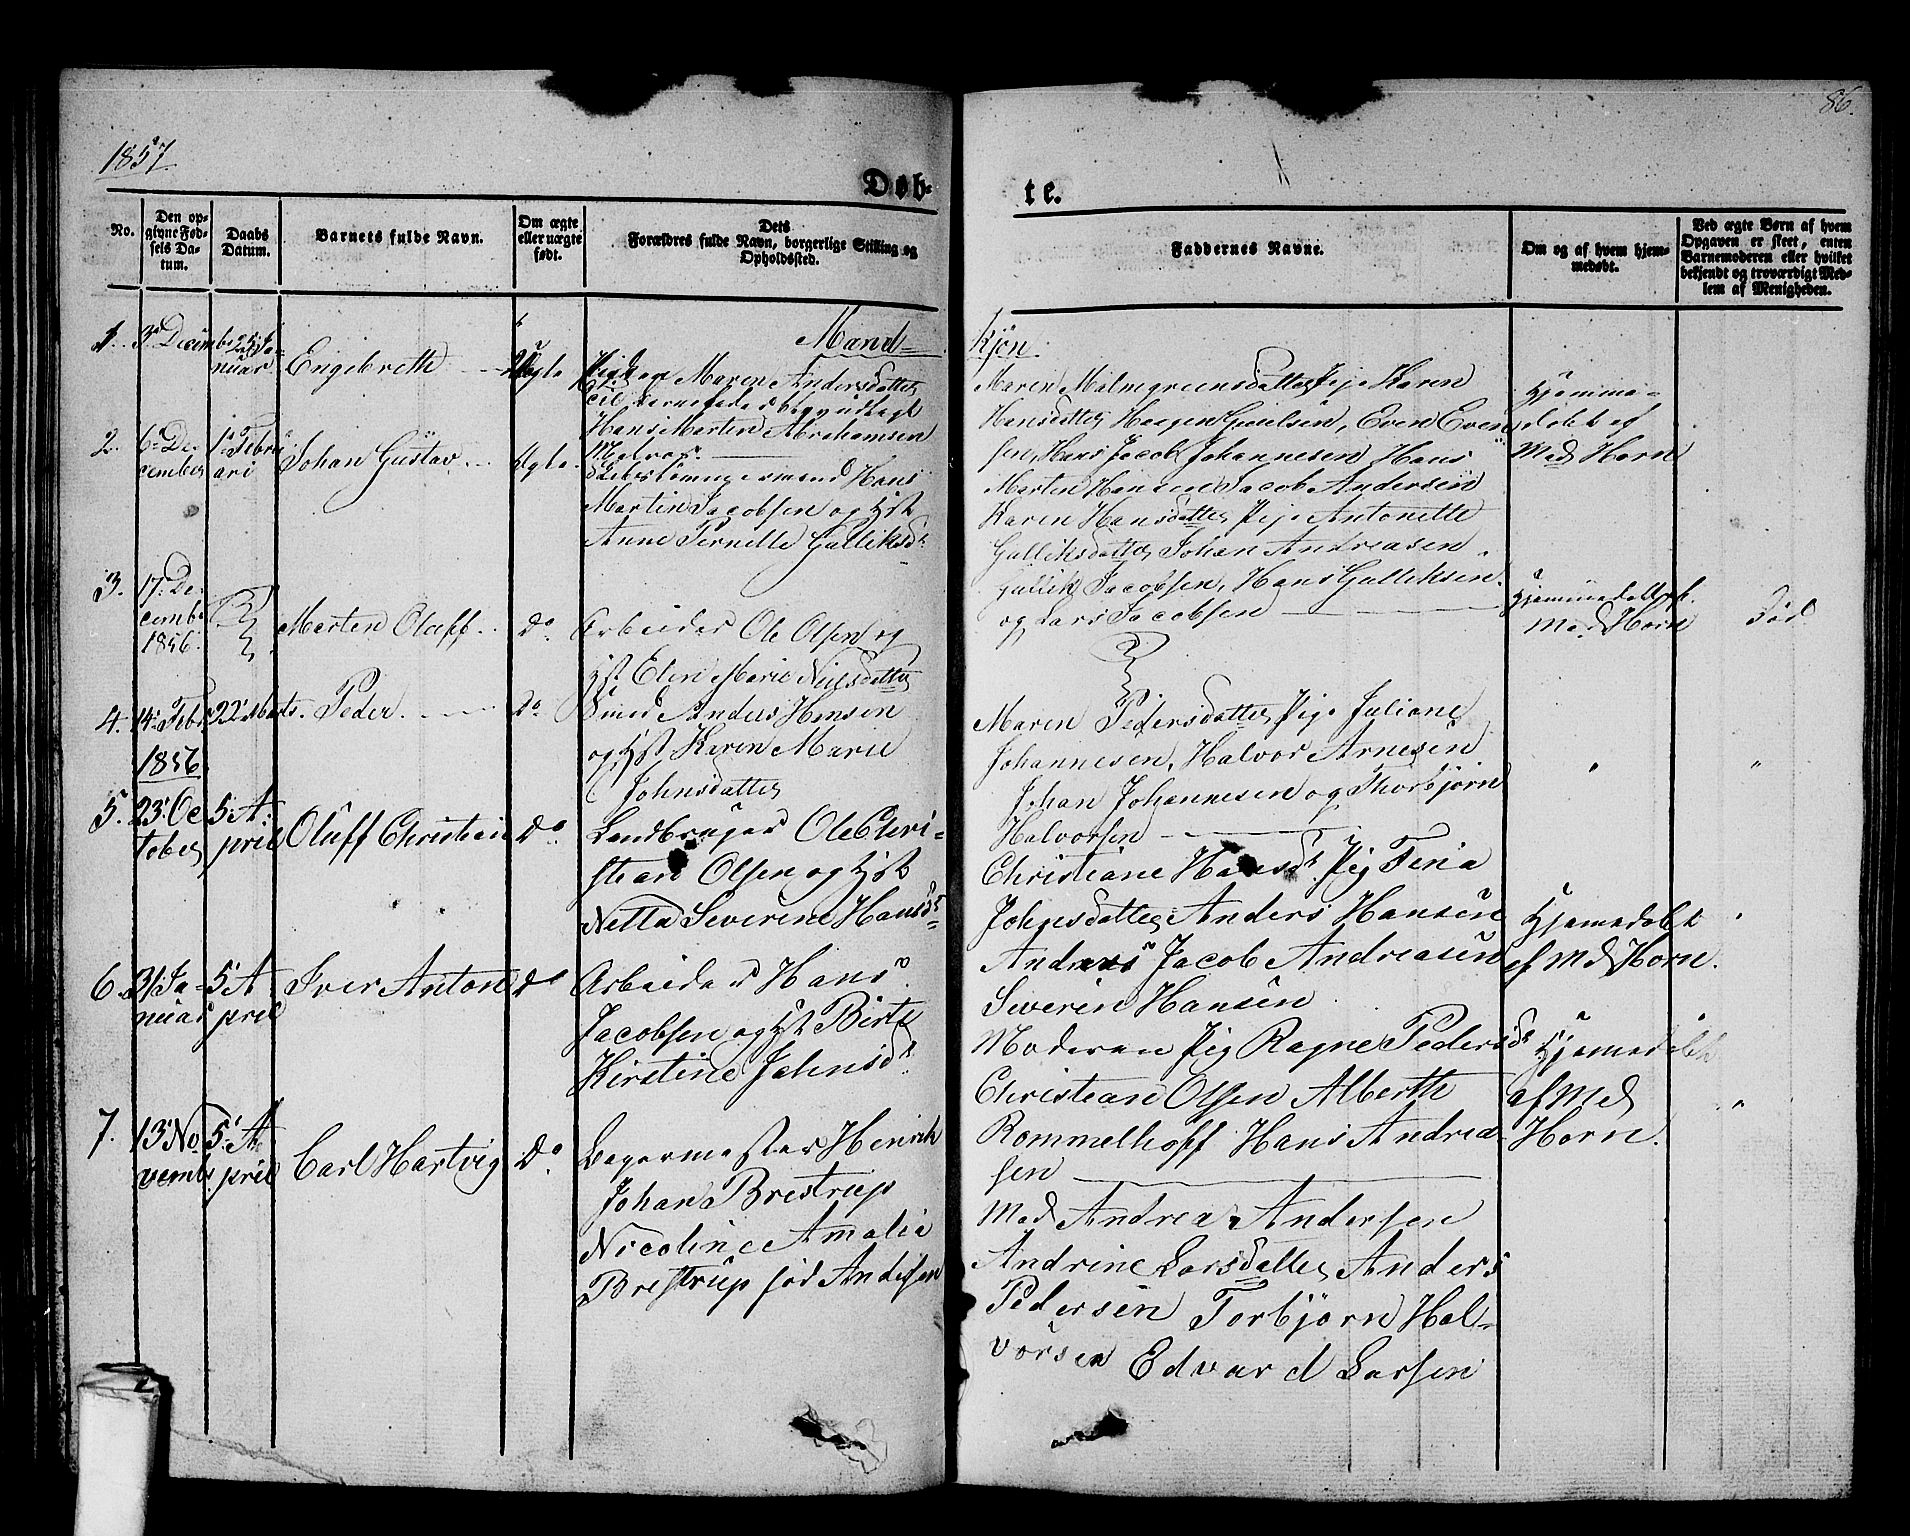 1857
86.
Døb-
te.
No.
Den op-
givne Fød-
sels Da-
tum.
Daabs
Datum.
Barnets fulde Navn.
Om ægte
eller uægte
født.
Dets
Forældres fulde Navn, borgerlige Stilling og
Opholdssted.
Faddernes Navne.
Om og af hvem hjem-
medøbt.
Ved ægte Børn af hvem
Opgaven er skeet, enten
Barnemoderen eller hvilket
bekjendt og troværdigt Med-
lem af Menigheden.
Mand-
kjøn.
1. 3 Decemb 25 Ja-
nuar
Engebreth
Maren Andersdatter
Hans Marten Abrahamsen
2. 6 De-
cember
1 Febru
ari
Johan Gustav
Ægte
Hans
Martin Jacobsen og Hst
Anne Pernelle Galliksdr
Maren Malmgreensdatter Pige Karen
Hansdatter Haagen Even Even
sen, Hans Jacob Johannesen Hans
Marten Hansen Jacob Andersen
Karen Hansdatter Pige Antonette
Galliksdatter Johan Andreasen
Gullik Jacobsen, Hans Galliksen
og Lars Jacobsen
Hjemme-
døbt af
Mad Horn
3. 17 De-
cember
1856.
Marten Oluff
do
Arbeider Ole Olsen og
Hst Elen Marie Nielsdatter
Hjemmedøbt af
Mad Horn
Død
4. 14 Febr 22 Marts. Peder
do
Smed Anders Hansen
og Hst Karen Marie
Johnsdatter
Maren Pedersdatter Pige Juliane
Johannesen, Halvor Arnesen
Johan Johannesen og Thorbjørn
Halvorsen
1856
5. 23 Oc
tober
5 A-
pril
Oluff Christian
Do
Landbruger Ole Chri-
stian Olsen og Hst
Netta Severine Hansdr
Christiane Hansdr Pig Tenia
Johnsdatter Anders Hansen
Andreas Jacob Andreasen
Severin Hansen
Hjemedøbt
af Md Horn.
6. 31 Ja-
nuar
5 A
pril
Iver Anton
do
Arbeider Hans
Jacobsen og Hst Birte
Kirstine Johnsdr
Moderen Pig Ragne Pedersdr
Christian Olsen Alberth
Rommelhoff Hans Andrea-
sen
Hjemedøbt
af Md
Horn.
7. 13 No
vemb.
5 A
pril
Carl Hartvig
Do
Bagermester Henrik
Johan Brestrup
Nicoline Amalia
Brestrup fød Andersen
Mad Andrea Andersen
Andrine Larsdatter Anders
Pedersen Torbjørn Hal-
vorsen Edvard Larsen